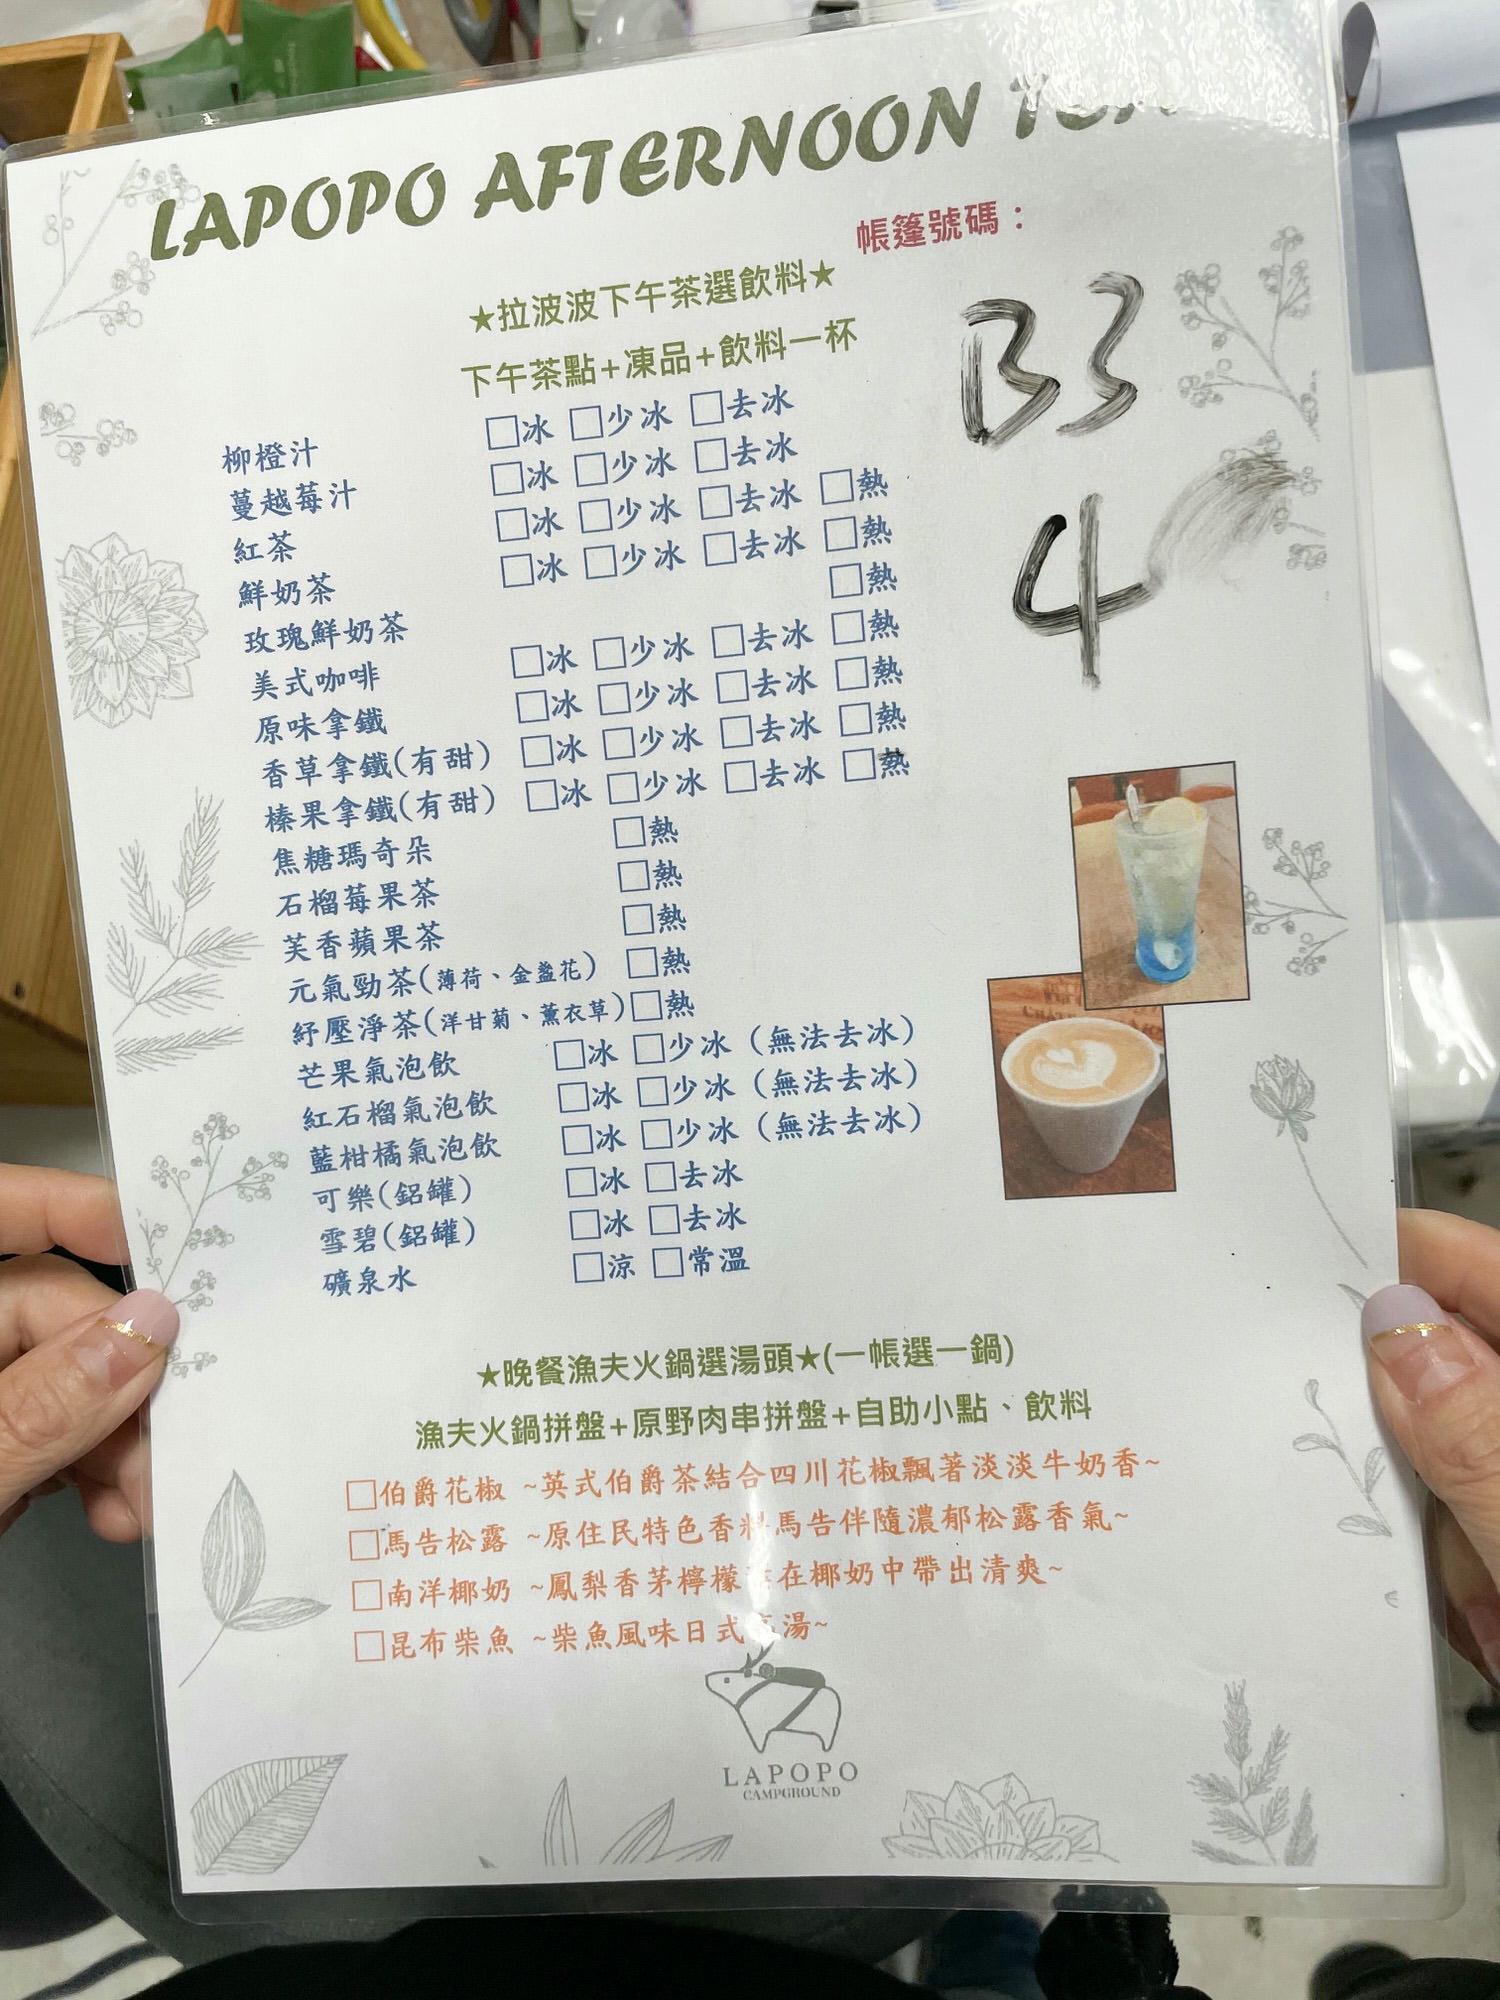 LAPOPO AFTERNOON
帳篷號碼：
B3
4
★拉波波下午茶選飲料★
下午茶點+凍品+飲料一杯
柳橙汁 □冰 □少冰 □去冰
蔓越莓汁 □冰 □少冰 □去冰
紅茶 □冰 □少冰 □去冰 □熱
鮮奶茶 □冰 □少冰 □去冰 □熱
玫瑰鮮奶茶 □熱
美式咖啡 □冰 □少冰 □去冰 □熱
原味拿鐵 □冰 □少冰 □去冰 □熱
香草拿鐵(有甜) □冰 □少冰 □去冰 □熱
榛果拿鐵(有甜) □冰 □少冰 □去冰 □熱
焦糖瑪奇朵 □熱
石榴莓果茶 □熱
芙香蘋果茶 □熱
元氣勁茶(薄荷、金盞花) □熱
紓壓淨茶(洋甘菊、薰衣草) □熱
芒果氣泡飲 □冰 □少冰 (無法去冰)
紅石榴氣泡飲 □冰 □少冰 (無法去冰)
藍柑橘氣泡飲 □冰 □少冰 (無法去冰)
可樂(鋁罐) □冰 □去冰
雪碧(鋁罐) □冰 □去冰
礦泉水 □涼 □常溫
★晚餐漁夫火鍋選湯頭★(一帳選一鍋)
漁夫火鍋拼盤+原野肉串拼盤+自助小點、飲料
□伯爵花椒 ~英式伯爵茶結合四川花椒飄著淡淡牛奶香~
□馬告松露 ~原住民特色香料馬告伴隨濃郁松露香氣~
□南洋椰奶 ~鳳梨香茅檸檬在椰奶中帶出清爽~
□昆布柴魚 ~柴魚風味日式高湯~
LAPOPO
CAMPGROUND